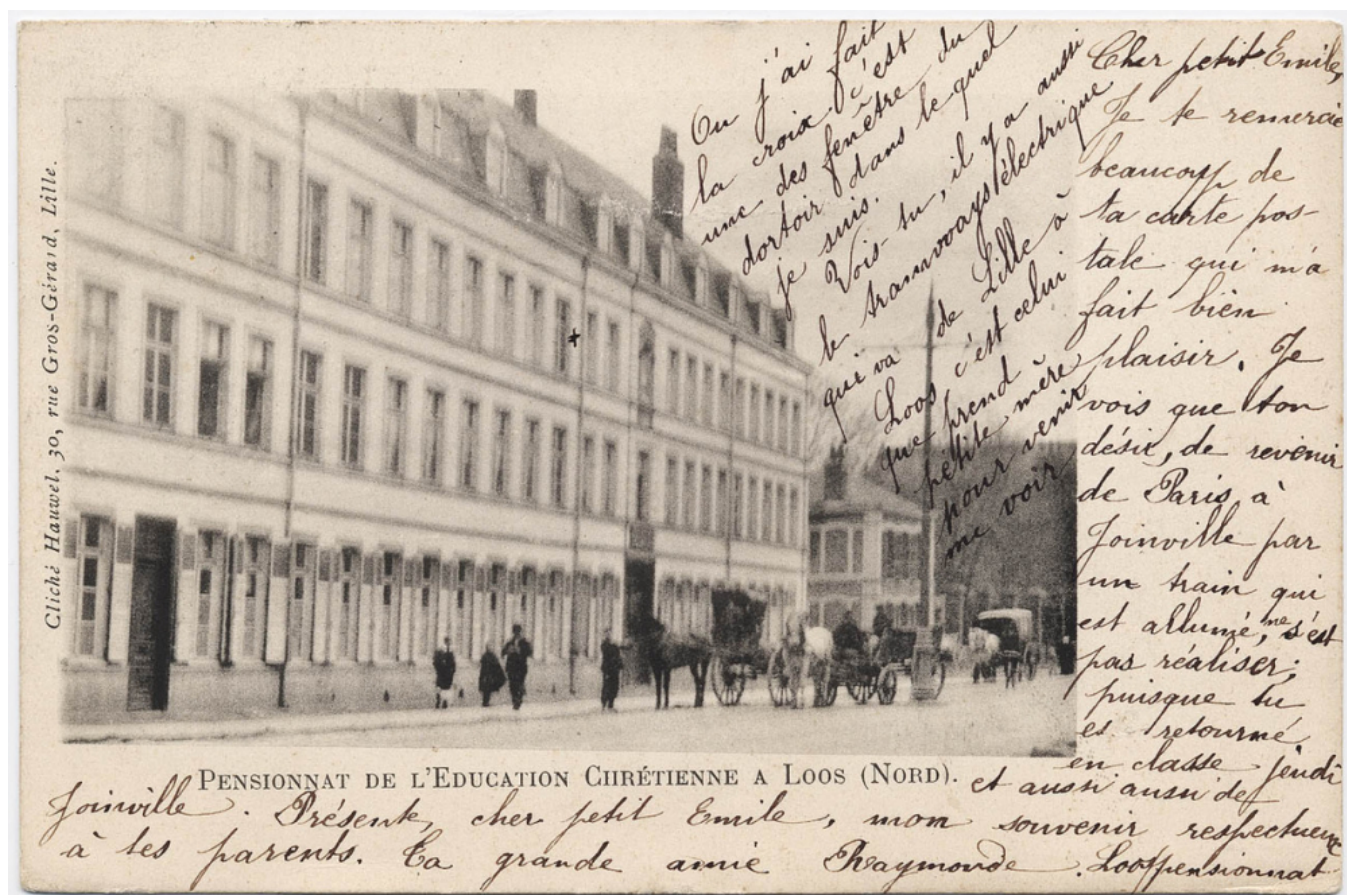 Cliché Hauwel, 30, rue Gros-Gérard, Lille.
Ou j'ai fait
la croix c'est
une des fenêtre du
dortoir dans le quel
je suis.
Vois-tu, il y a aussi
le tramwoays électrique
qui va de Lille à
Loos c'est celui
que prend
petite mère
pour venir
me voir
Cher petit Emile,
Je te remercie
beaucoup de
ta carte pos-
tale qui m'a
fait bien
plaisir. Je
vois que ton
désir, de revenir
de Paris à
Joinville par
un train qui
est allumé, ne s'est
pas réaliser;
puisque tu
es retourné
en classe jeudi
et aussi aussi de
PENSIONNAT DE L'EDUCATION CHRÉTIENNE A LOOS (NORD).
Joinville. Présente, cher petit Emile, mon souvenir respectueux
à tes parents. Ta grande amie Raymonde. Loos pensionnat